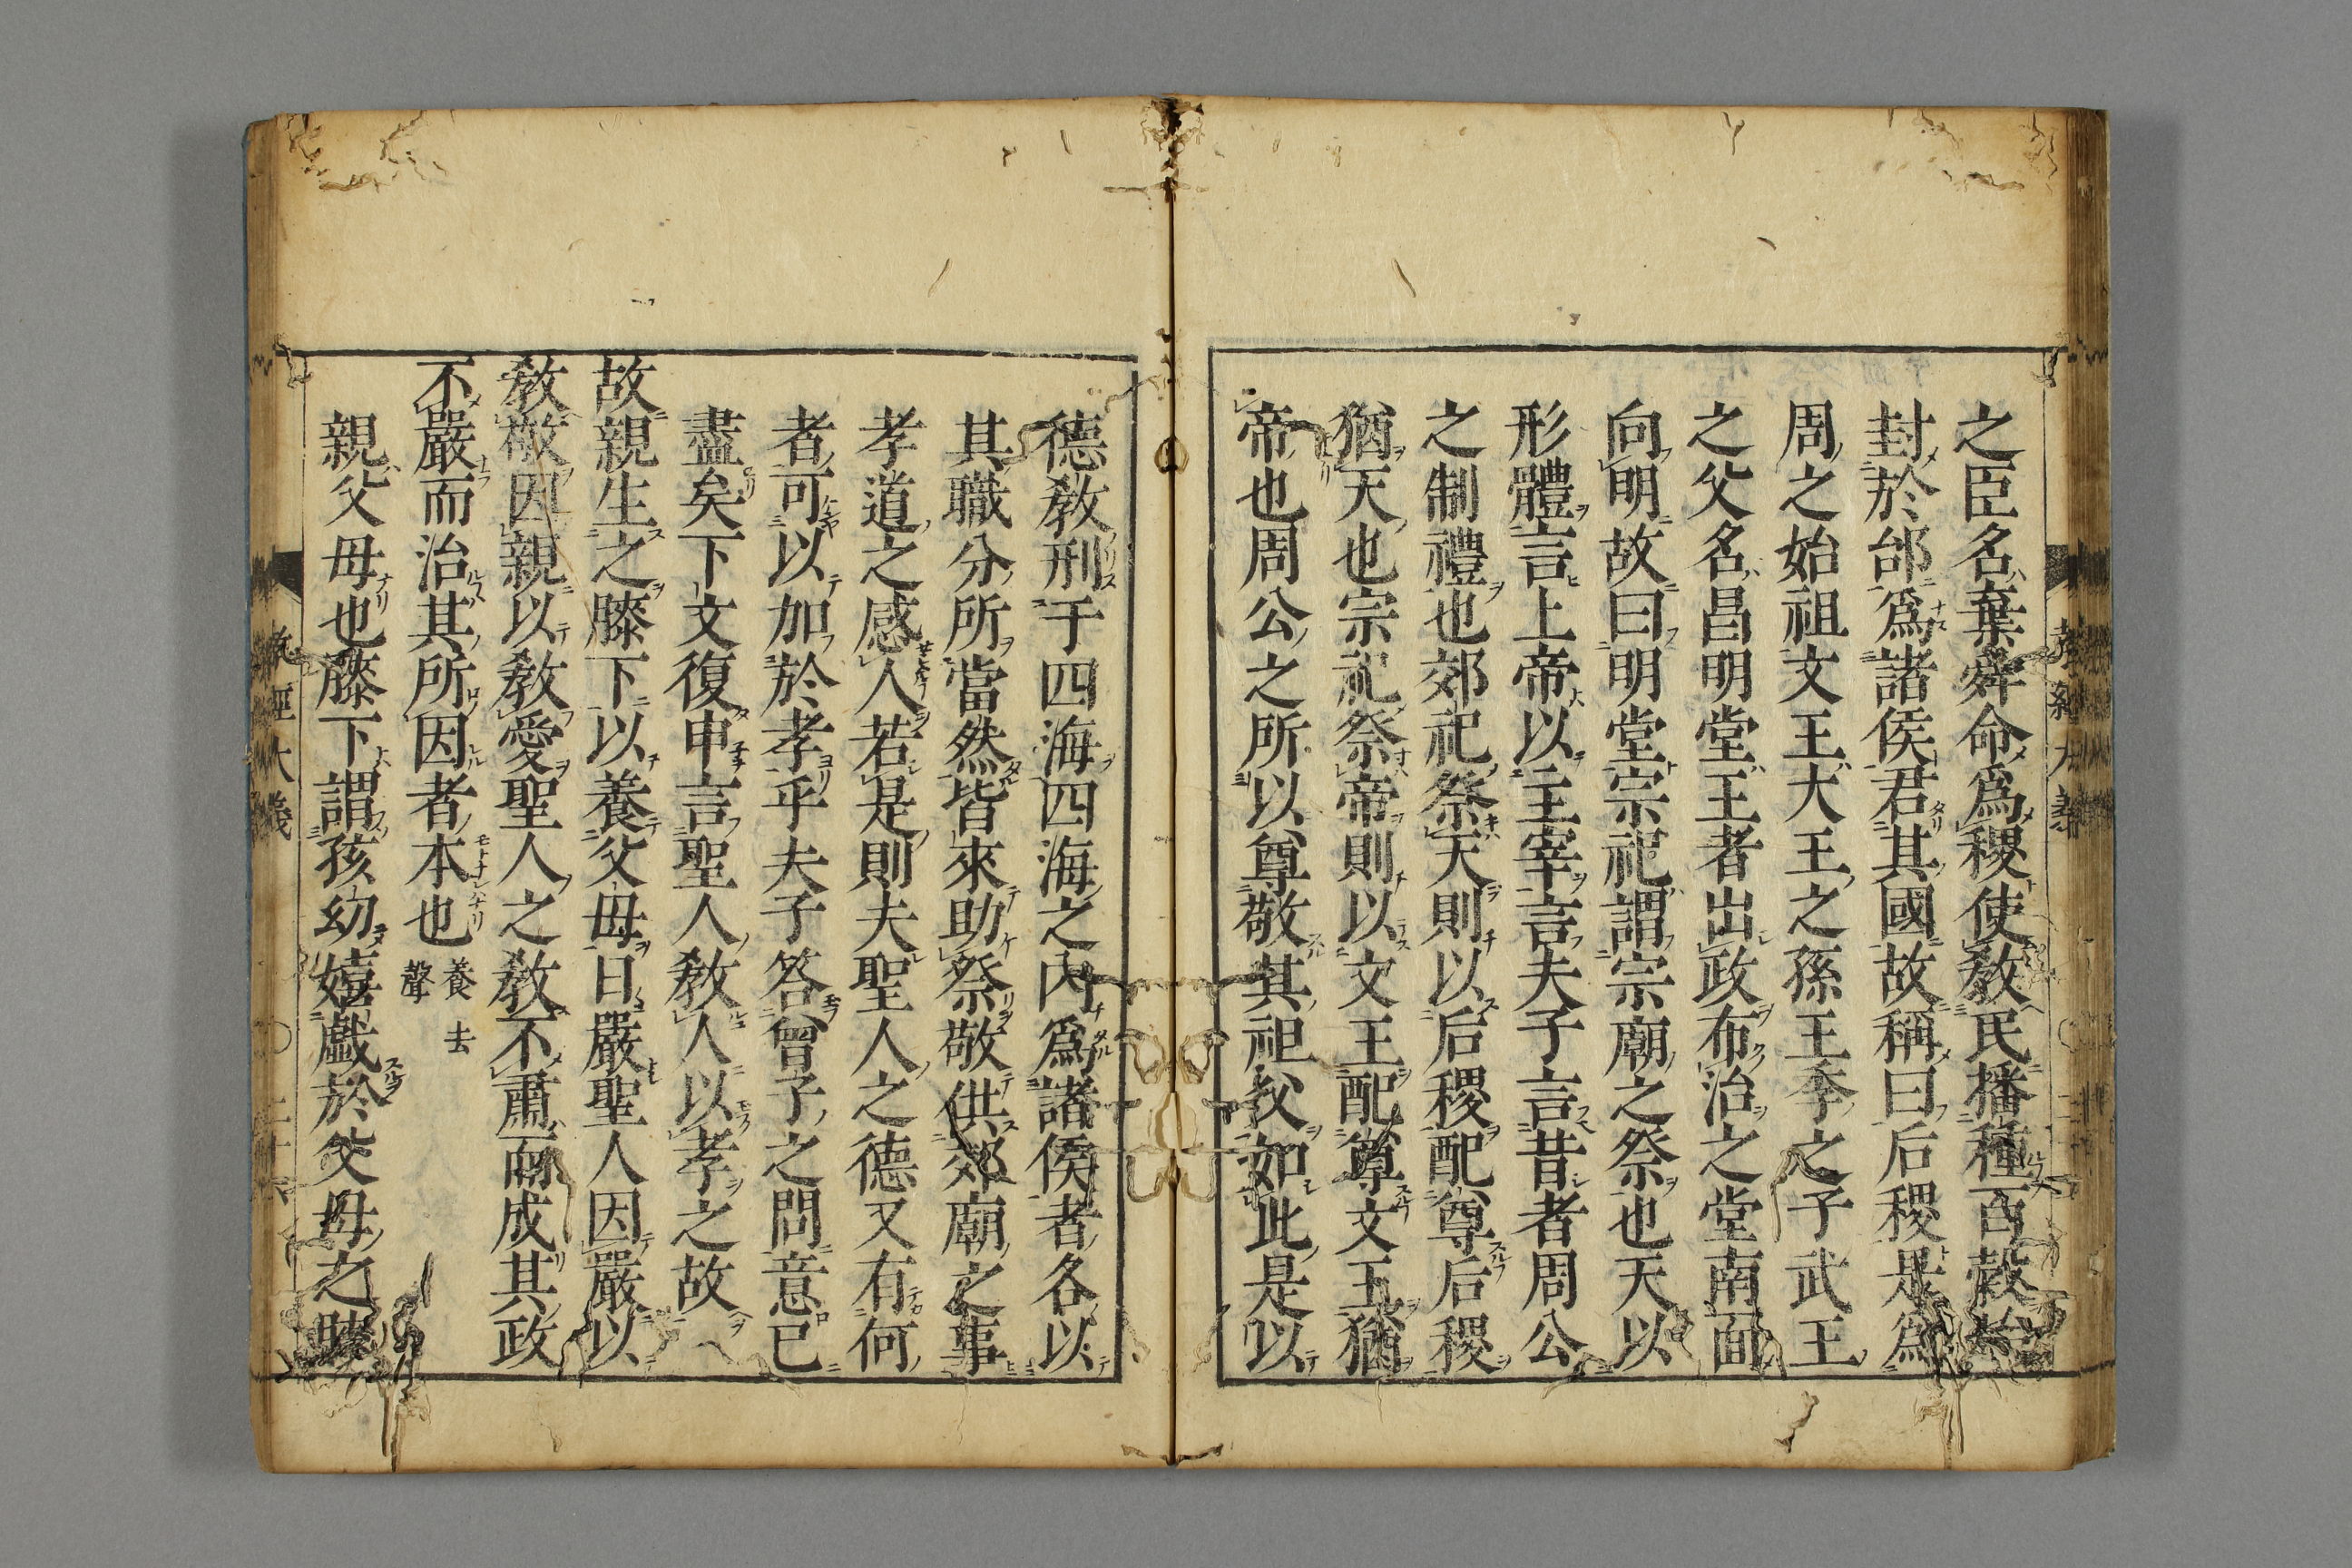 之臣名棄舜命爲稷使教民播種百穀始
封於邰爲諸侯君其國故稱曰后稷是爲
周之始祖文王大王之孫王季之子武王
之父名昌明堂王者出政布治之堂南面
向明故曰明堂宗祀謂宗廟之祭也天以
形體言上帝以主宰言夫子言昔者周公
之制禮也郊祀祭天則以后稷配尊后稷
猶天也宗祀祭帝則以文王配尊文王猶
帝也周公之所以尊敬其祀父如此是以
德教刑于四海四海之内爲諸侯者各以
其職分所當然皆來助祭敬供郊廟之事
孝道之感人若是則夫聖人之德又有何
者可以加於孝乎夫子答曾子之問意已
盡矣下文復申言聖人教人以孝之故
故親生之膝下以養父母日嚴聖人因嚴以
教敬因親以教愛聖人之教不肅而成其政
不嚴而治其所因者本也 養去聲
親父母也膝下謂孩幼嬉戲於父母之膝
孝經大義